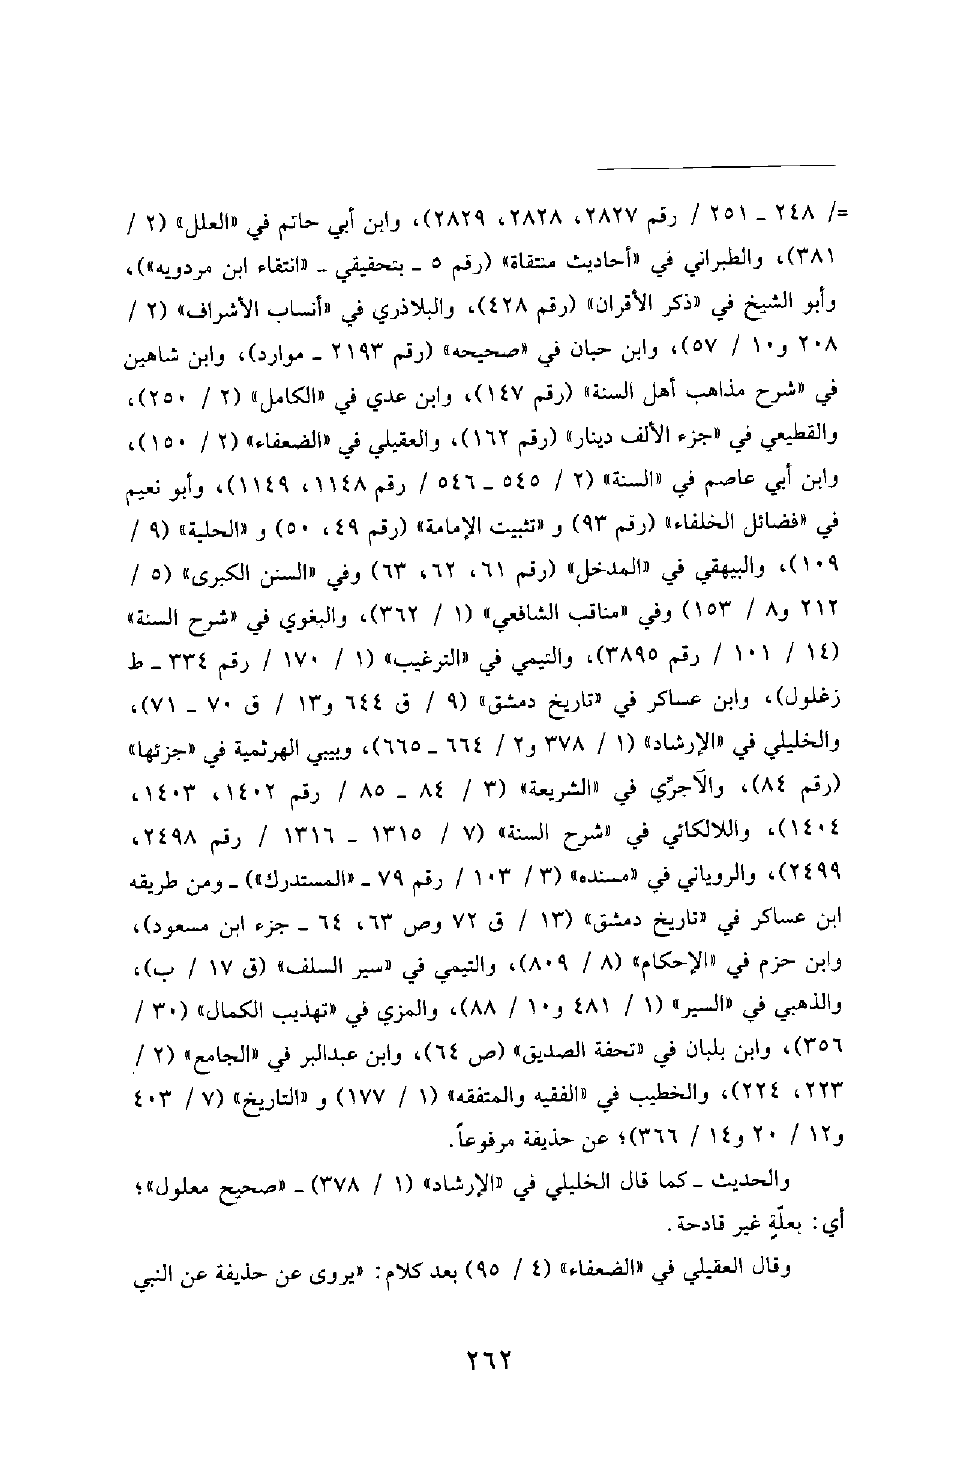 =/ ٢٤٨ ـ ٢٥١ / رقم ٢٨٢٧، ٢٨٢٨، ٢٨٢٩)، وابن أبي حاتم في «العلل» (٢ /
٣٨١)، والطبراني في «أحاديث منتقاة» (رقم ٥ ـ بتحقيقي ـ «انتقاء ابن مردويه»)،
وأبو الشيخ في «ذكر الأقران» (رقم ٤٢٨)، والبلاذري في «أنساب الأشراف» (٢ /
٢٠٨ و١٠ / ٥٧)، وابن حبان في «صحيحه» (رقم ٢١٩٣ ـ موارد)، وابن شاهين
في «شرح مذاهب أهل السنة» (رقم ١٤٧)، وابن عدي في «الكامل» (٢ / ٢٥٠)،
والقطيعي في «جزء الألف دينار» (رقم ١٦٢)، والعقيلي في «الضعفاء» (٢ / ١٥٠)،
وابن أبي عاصم في «السنة» (٢ / ٥٤٥ ـ ٥٤٦ / رقم ١١٤٨، ١١٤٩)، وأبو نعيم
في «فضائل الخلفاء» (رقم ٩٣) و «تثبيت الإمامة» (رقم ٤٩، ٥٠) و «الحلية» (٩ /
١٠٩)، والبيهقي في «المدخل» (رقم ٦١، ٦٢، ٦٣) وفي «السنن الكبرى» (٥ /
٢١٢ و٨ / ١٥٣) وفي «مناقب الشافعي» (١ / ٣٦٢)، والبغوي في «شرح السنة»
(١٤ / ١٠١ / رقم ٣٨٩٥)، والتيمي في «الترغيب» (١ / ١٧٠ / رقم ٣٣٤ ـ ط
زغلول)، وابن عساكر في «تاريخ دمشق» (٩ / ق ٦٤٤ و١٣ / ق ٧٠ ـ ٧١)،
والخليلي في «الإرشاد» (١ / ٣٧٨ و٢ / ٦٦٤ ـ ٦٦٥)، وبيبي الهرثمية في «جزئها»
(رقم ٨٤)، والآجرّي في «الشريعة» (٣ / ٨٤ ـ ٨٥ / رقم ١٤٠٢، ١٤٠٣،
١٤٠٤)، واللالكائي في «شرح السنة» (٧ / ١٣١٥ ـ ١٣١٦ / رقم ٢٤٩٨،
٢٤٩٩)، والروياني في «مسنده» (٣ / ١٠٣ / رقم ٧٩ ـ «المستدرك») ـ ومن طريقه
ابن عساكر في «تاريخ دمشق» (١٣ / ق ٧٢ وص ٦٣، ٦٤ ـ جزء ابن مسعود)،
وابن حزم في «الإحكام» (٨ / ٨٠٩)، والتيمي في «سير السلف» (ق ١٧ / ب)،
والذهبي في «السير» (١ / ٤٨١ و١٠ / ٨٨)، والمزي في «تهذيب الكمال» (٣٠ /
٣٥٦)، وابن بلبان في «تحفة الصديق» (ص ٦٤)، وابن عبدالبر في «الجامع» (٢ /
٢٢٣، ٢٢٤)، والخطيب في «الفقيه والمتفقه» (١ / ١٧٧) و «التاريخ» (٧ / ٤٠٣
و١٢ / ٢٠ و١٤ / ٣٦٦)؛ عن حذيفة مرفوعاً.
والحديث ـ كما قال الخليلي في «الإرشاد» (١ / ٣٧٨) ـ «صحيح معلول»؛
أي: بعلّةٍ غير قادحة.
وقال العقيلي في «الضعفاء» (٤ / ٩٥) بعد كلام: «يروى عن حذيفة عن النبي
٢٦٢